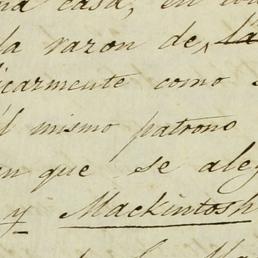 na casa, en
la razon de, la
icarmente como
el mismo patrono
en que se aleg
y Mackintosh